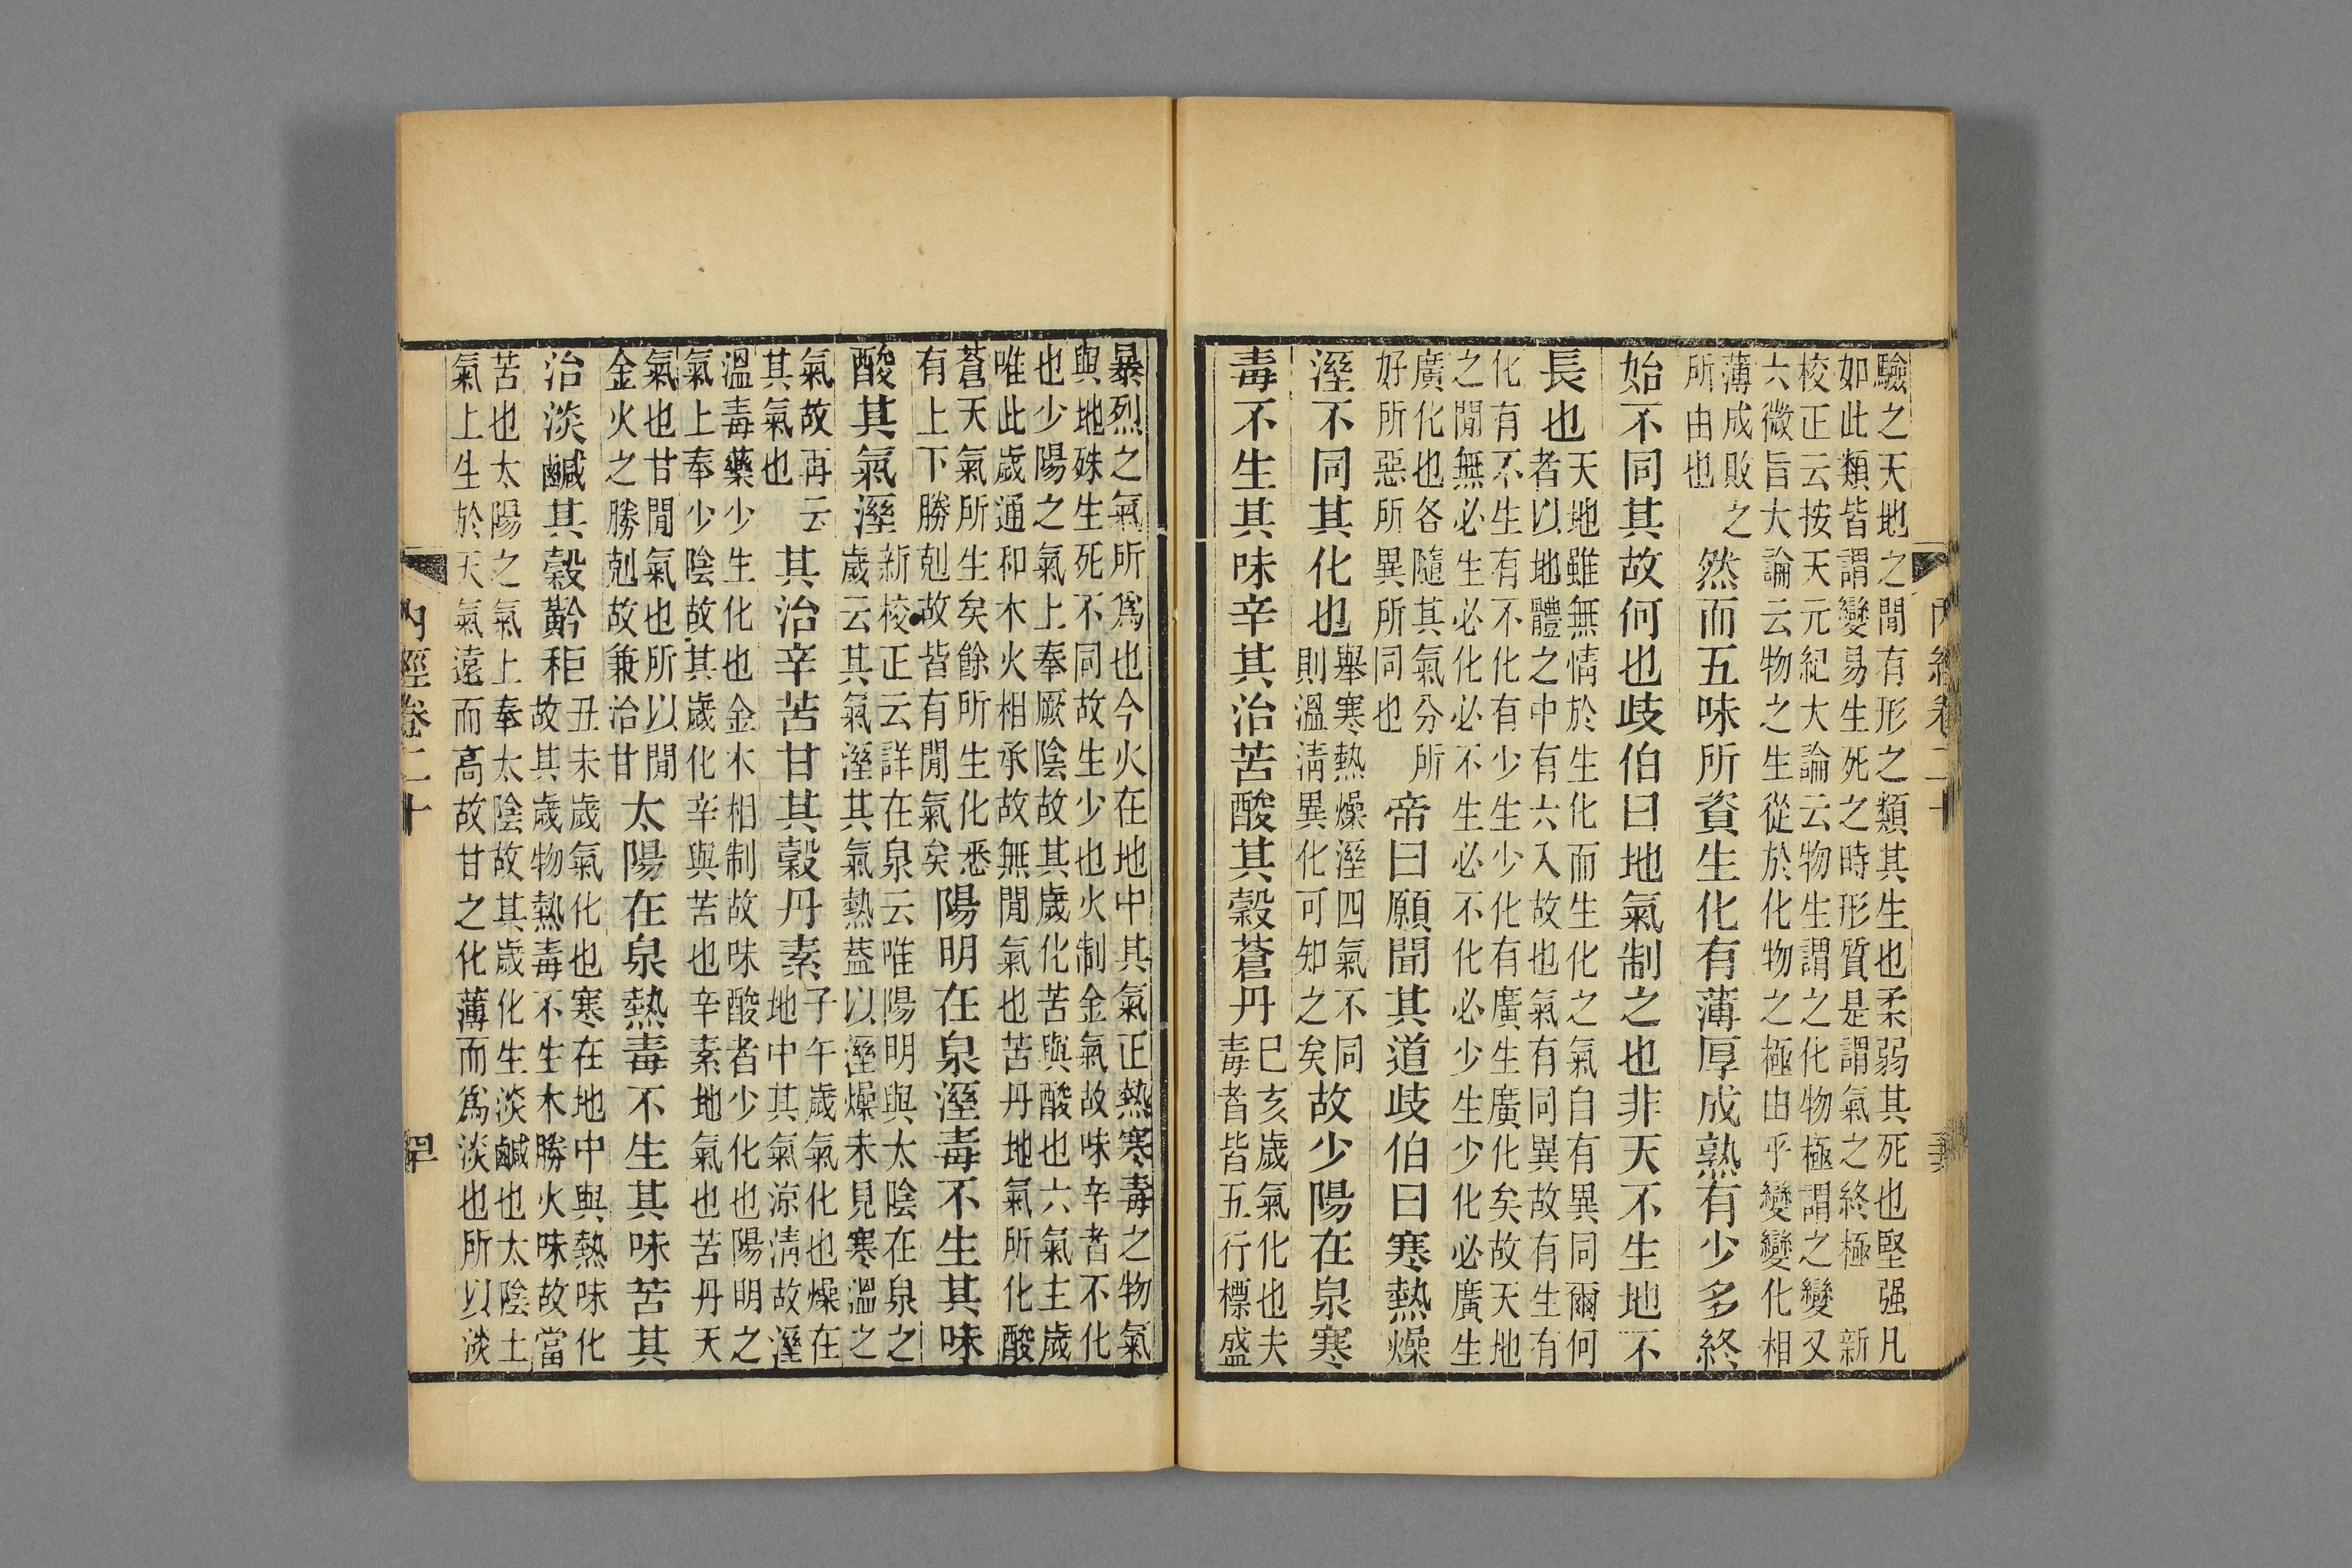 驗之天地之閒有形之類其生也柔弱其死也堅强凡
如此類皆謂變易生死之時形質是謂氣之終極 新
校正云按天元紀大論云物生謂之化物極謂之變又
六微旨大論云物之生從於化物之極由乎變變化相
薄成敗之
所由也
然而五味所資生化有薄厚成熟有少多終
始不同其故何也歧伯曰地氣制之也非天不生地不
長也
天地雖無情於生化而生化之氣自有異同爾何
者以地體之中有六入故也氣有同異故有生有
化有不生有不化有少生少化有廣生廣化矣故天地
之閒無必生必化必不生必不化必少生少化必廣生
廣化也各隨其氣分所
好所惡所異所同也
帝曰願聞其道歧伯曰寒熱燥
溼不同其化也
舉寒熱燥溼四氣不同
則溫淸異化可知之矣
故少陽在泉寒
毒不生其味辛其治苦酸其穀蒼丹
巳亥歲氣化也夫
毒者皆五行標盛
暴烈之氣所爲也今火在地中其氣正熱寒毒之物氣
與地殊生死不同故生少也火制金氣故味辛者不化
也少陽之氣上奉厥陰故其歲化苦與酸也六氣主歲
唯此歲通和木火相承故無閒氣也苦丹地氣所化酸
蒼天氣所生矣餘所生化悉
有上下勝剋故皆有閒氣矣
陽明在泉溼毒不生其味
酸其氣溼
新校正云詳在泉云唯陽明與太陰在泉之
歲云其氣溼其氣熱蓋以溼燥未見寒溫之
氣故再云
其氣也
其治辛苦甘其穀丹素
子午歲氣化也燥在
地中其氣涼淸故溼
溫毒藥少生化也金木相制故味酸者少化也陽明之
氣上奉少陰故其歲化辛與苦也辛素地氣也苦丹天
氣也甘閒氣也所以閒
金火之勝剋故兼治甘
太陽在泉熱毒不生其味苦其
治淡鹹其穀黅秬
丑未歲氣化也寒在地中與熱味化
故其歲物熱毒不生木勝火味故當
苦也太陽之氣上奉太陰故其歲化生淡鹹也太陰土
氣上生於天氣遠而高故甘之化薄而爲淡也所以淡
內經卷二十